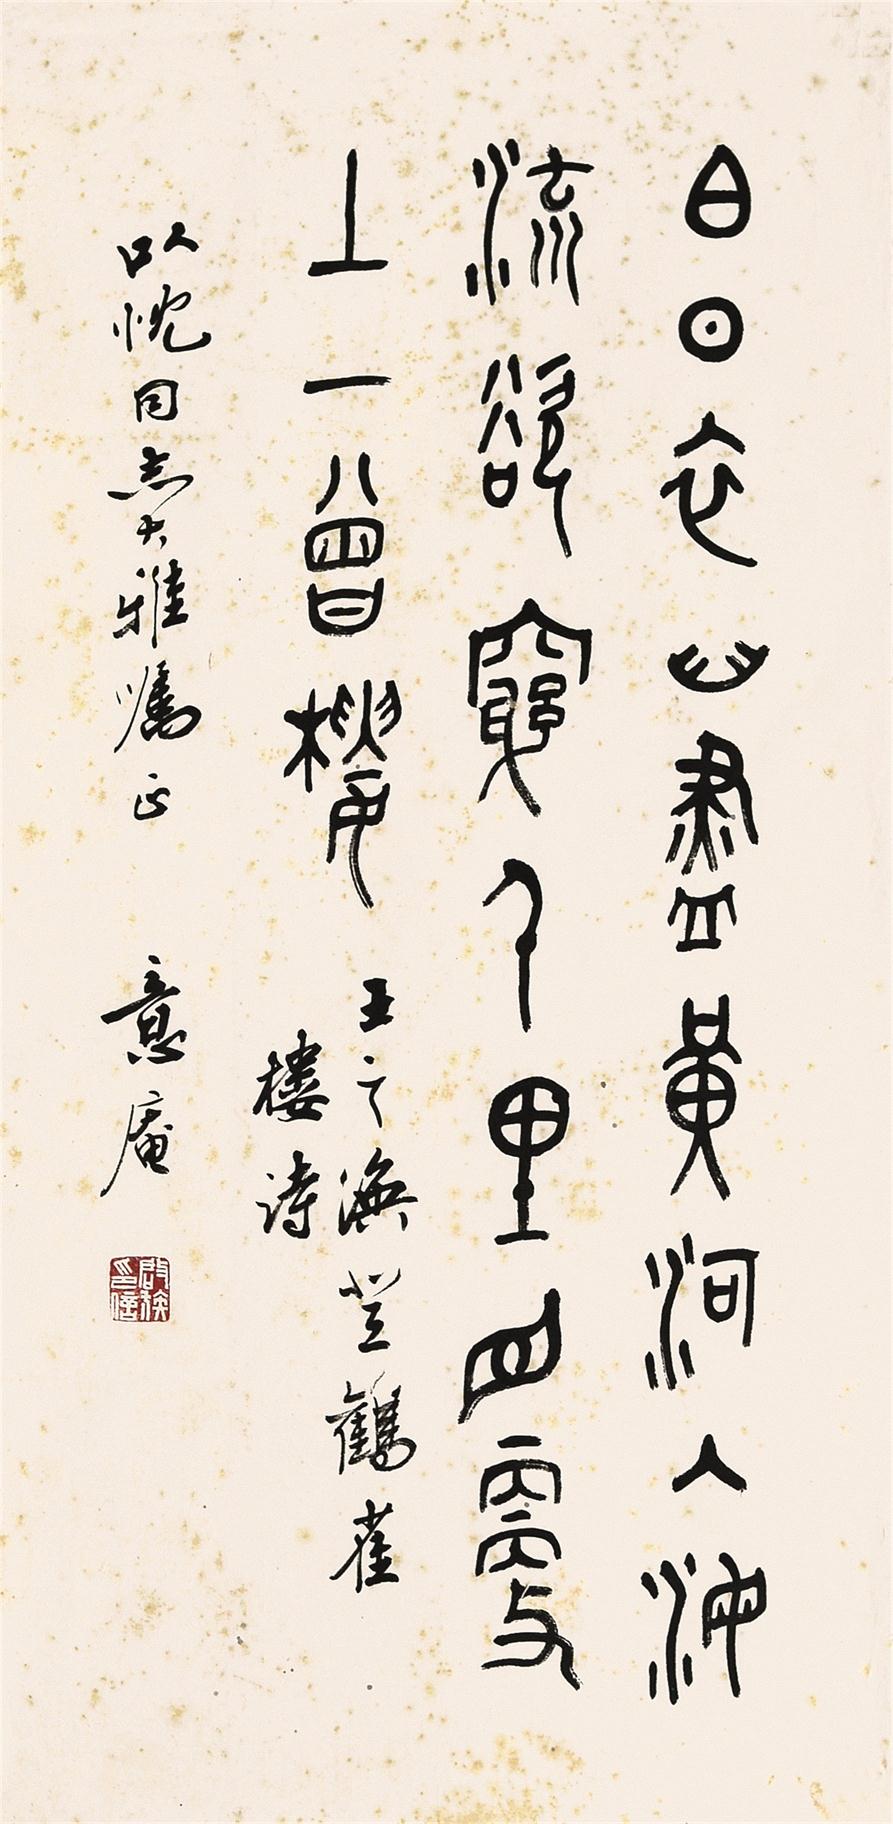 白日衣山盡黃河入海
流欲窮千里目更
上一曾樓
王之渙登鸛雀
樓詩
以忱同志大雅囑正
意庵